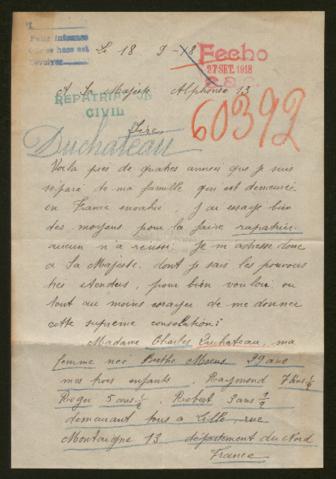 Le 18 9-18
Fecho
27 SET. 1918
A Sa Majesté Alphonse 13
REPATRIACION
CIVIL
60392
Sire
Duchateau
Voila près de quatres années que je suis
séparé de ma famille qui est demeuré
en France envahie. J'ai essayé bien
des moyens pour la faire rapatrier
aucun n'a réussi. Je m'adresse donc
a Sa Majesté, dont je sais les pouvoirs
très étendus, pour bien vouloir ou
tout au moins essayer de me donner
cette suprème consolation:
Madame Charles Duchateau, ma
femme née Berthe 29 ans
mes trois enfants. Raymond 7 ans ½
Roger 5 ans ½. Robert 3 ans ½
demeurant tous à Lille, rue
Montaigne 13 département du Nord
France